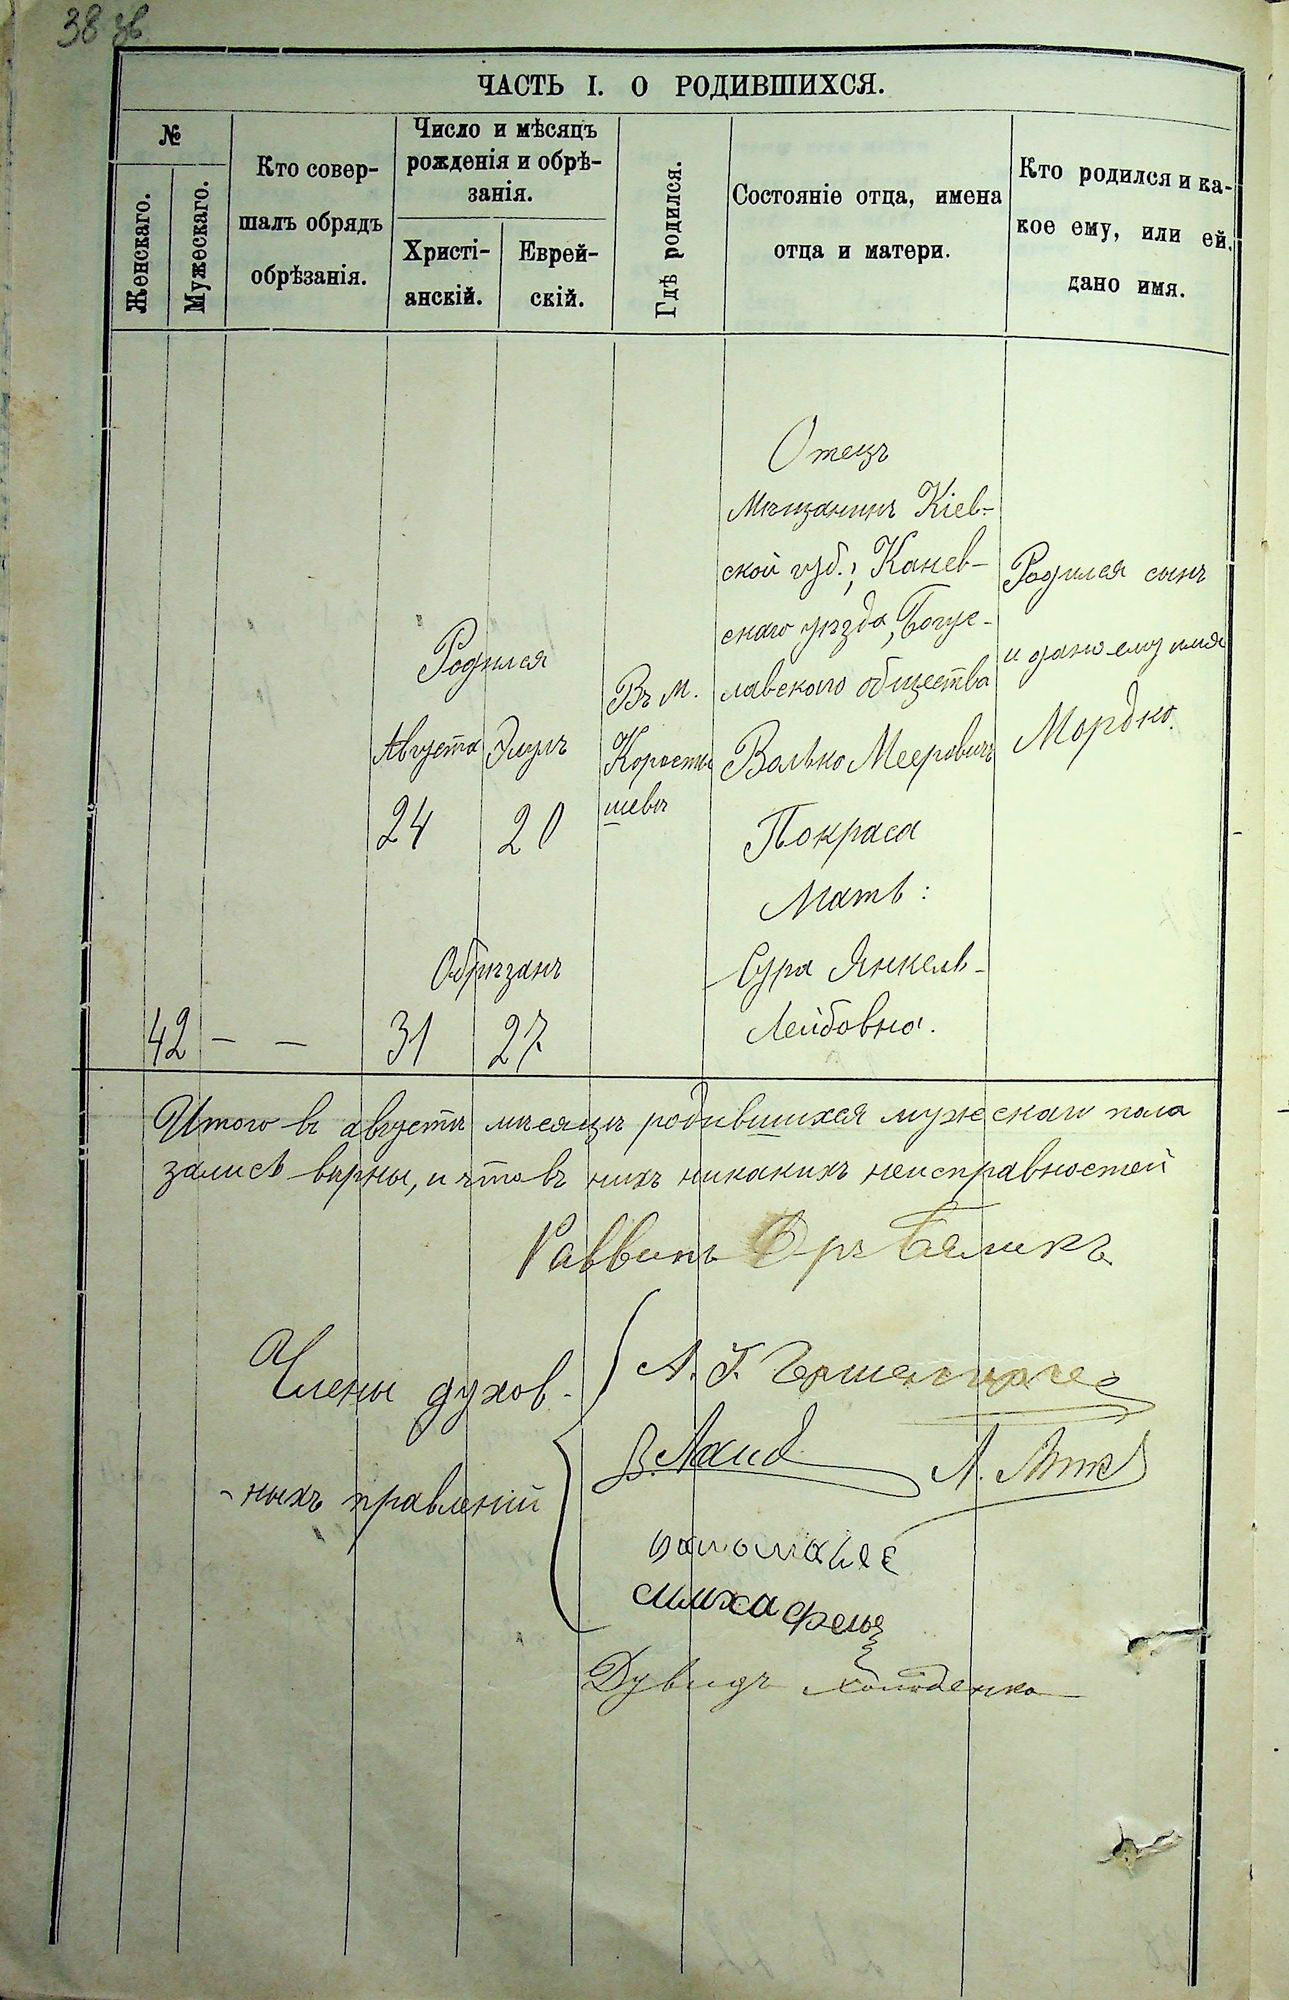 38 зв
ЧАСТЬ I. О РОДИВШИХСЯ.
№
Женскаго.
Мужескаго.
Кто совер-
шалъ обрядъ
обрѣзанія.
Число и мѣсяцъ
рожденія и обрѣ-
занія.
Христі-
анскій.
Еврей-
скій.
Гдѣ родился.
Состояніе отца, имена
отца и матери.
Кто родился и ка-
кое ему, или ей,
дано имя.
42 — —
Родился
Августа Элулъ
24 20
Обрѣзанъ
31 27
Въ м.
Коросты
шевѣ
Отецъ
мѣщанинъ Кіев-
ской губ., Канев-
скаго уѣзда, Богус-
лавскаго общества
Волько Мееровичъ
Покраса
Мать:
Сура Янкель-
Лейбовна.
Родился сынъ
и дано ему имя
Мордко.
Итого въ августѣ мѣсяцѣ родившихся мужескаго пола
записѣ вѣрны, и что въ нихъ никакихъ неисправностей
Раввинъ Дръ Бяликъ
Члены духов-
ныхъ правленій
А. Г.
В.
А.
Дувидъ Холоденко